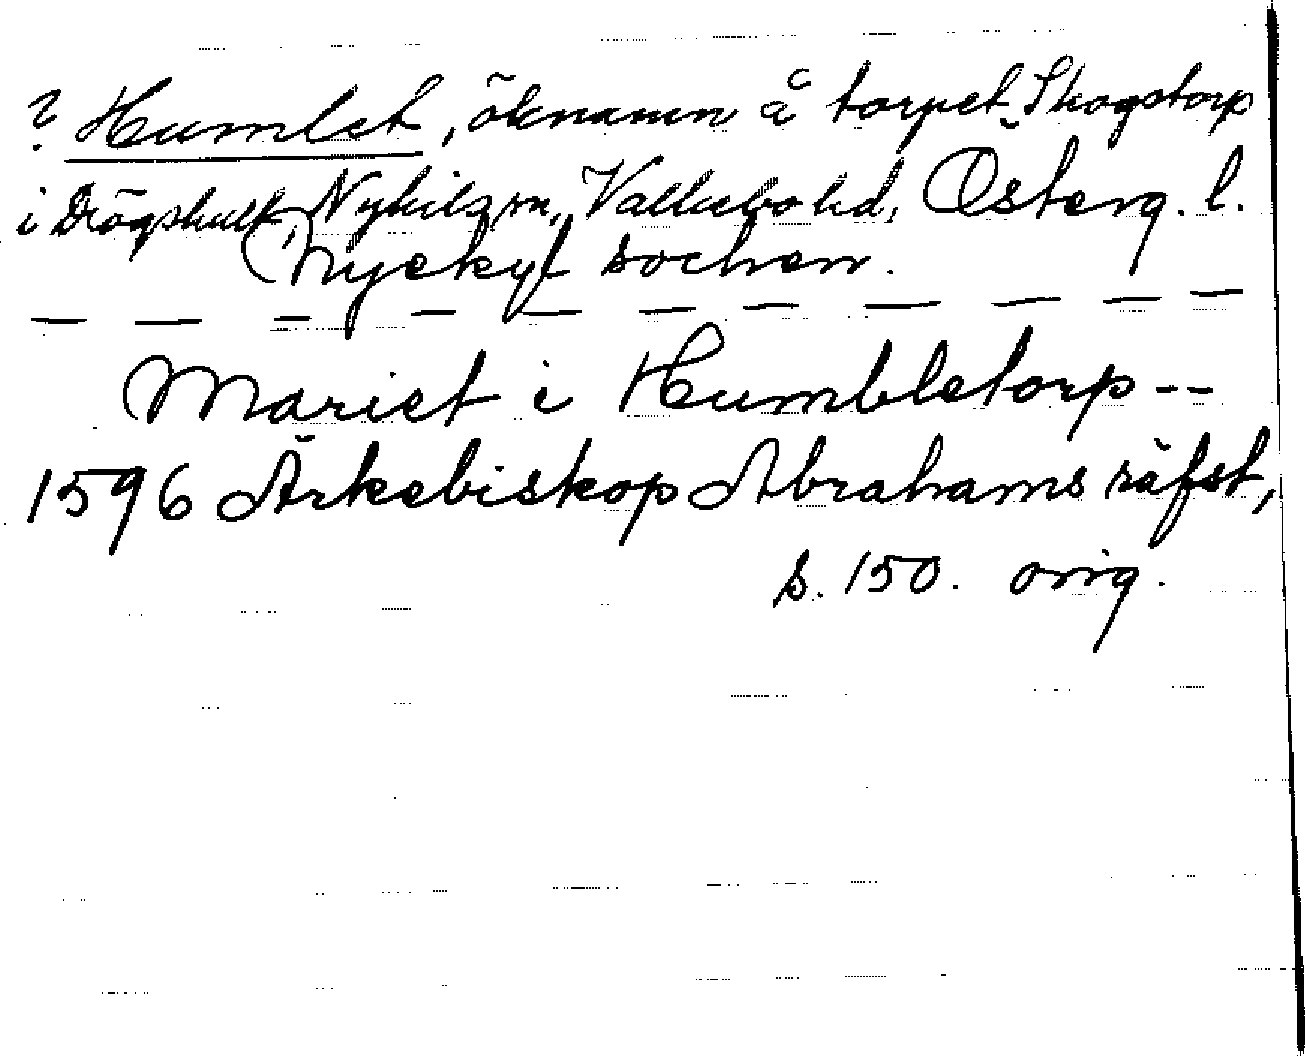 ? Humlet, öknamn å torpet Skogstorp
i Drögshult, Nykils sn, Valkebo hd, Österg. l.
Nyekyl sochen.
— — — — — — — — — —
Mariet i Humbletorp--
1596 Ärkebiskop Abrahams räfst,
s. 150. orig.